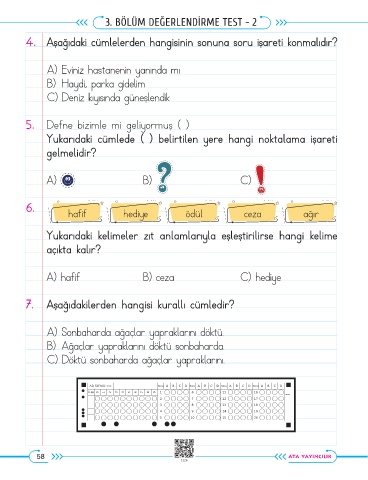 3. BÖLÜM DEĞERLENDİRME TEST - 2
4. Aşağıdaki cümlelerden hangisinin sonuna soru işareti konmalıdır?
A) Eviniz hastanenin yanında mı
B) Haydi, parka gidelim
C) Deniz kıyısında güneşlendik
5. Defne bizimle mi geliyormuş ( )
Yukarıdaki cümlede ( ) belirtilen yere hangi noktalama işareti
gelmelidir?
A) B) ? C) !
6. hafif hediye ödül ceza ağır
Yukarıdaki kelimeler zıt anlamlarıyla eşleştirilirse hangi kelime
açıkta kalır?
A) hafif B) ceza C) hediye
7. Aşağıdakilerden hangisi kurallı cümledir?
A) Sonbaharda ağaçlar yapraklarını döktü.
B) Ağaçlar yapraklarını döktü sonbaharda.
C) Döktü sonbaharda ağaçlar yapraklarını.
58
ATA YAYINCILIK